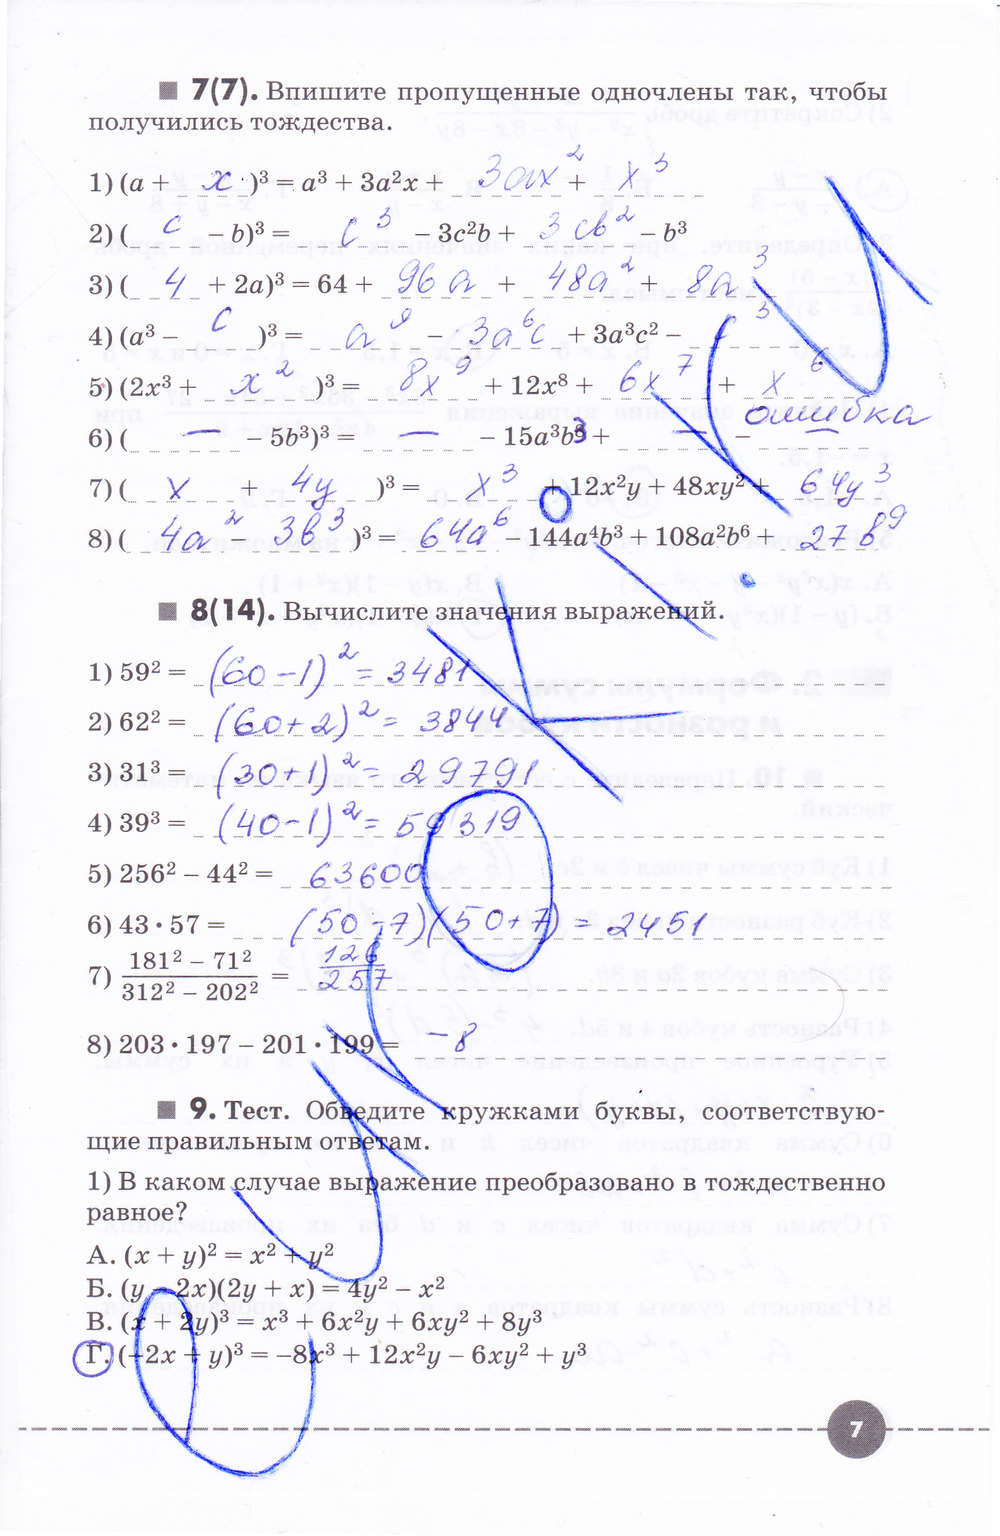 7(7). Впишите пропущенные одночлены так, чтобы
получились тождества.
1) (a + x )³ = a³ + 3a²x + 3ax² + x³
2) ( c – b)³ = c³ – 3c²b + 3cb² – b³
3) ( 4 + 2a)³ = 64 + 96a + 48a² + 8a³
4) (a³ – c )³ = a⁹ – 3a⁶c + 3a³c² – c³
5) (2x³ + x² )³ = 8x⁹ + 12x⁸ + 6x⁷ + x⁶
ошибка
6) ( — – 5b³)³ = — – 15a³b³ + — –
7) ( x + 4y )³ = x³ + 12x²y + 48xy² + 64y³
8) ( 4a² 3b³ )³ = 64a⁶ – 144a⁴b³ + 108a²b⁶ + 27b⁹
8(14). Вычислите значения выражений.
1) 59² = (60-1)² = 3481
2) 62² = (60+2)² = 3844
3) 31³ = (30+1)² = 29791
4) 39³ = (40-1)² = 59319
5) 256² – 44² = 63600
6) 43 · 57 = (50-7)(50+7) = 2451
7) 181² – 71² / 312² – 202² = 126/257
8) 203 · 197 – 201 · 199 = -8
9. Тест. Обведите кружками буквы, соответствую-
щие правильным ответам.
1) В каком случае выражение преобразовано в тождественно
равное?
А. (x + y)² = x² + y²
Б. (y – 2x)(2y + x) = 4y² – x²
В. (x + 2y)³ = x³ + 6x²y + 6xy² + 8y³
Г. (–2x + y)³ = –8x³ + 12x²y – 6xy² + y³
7